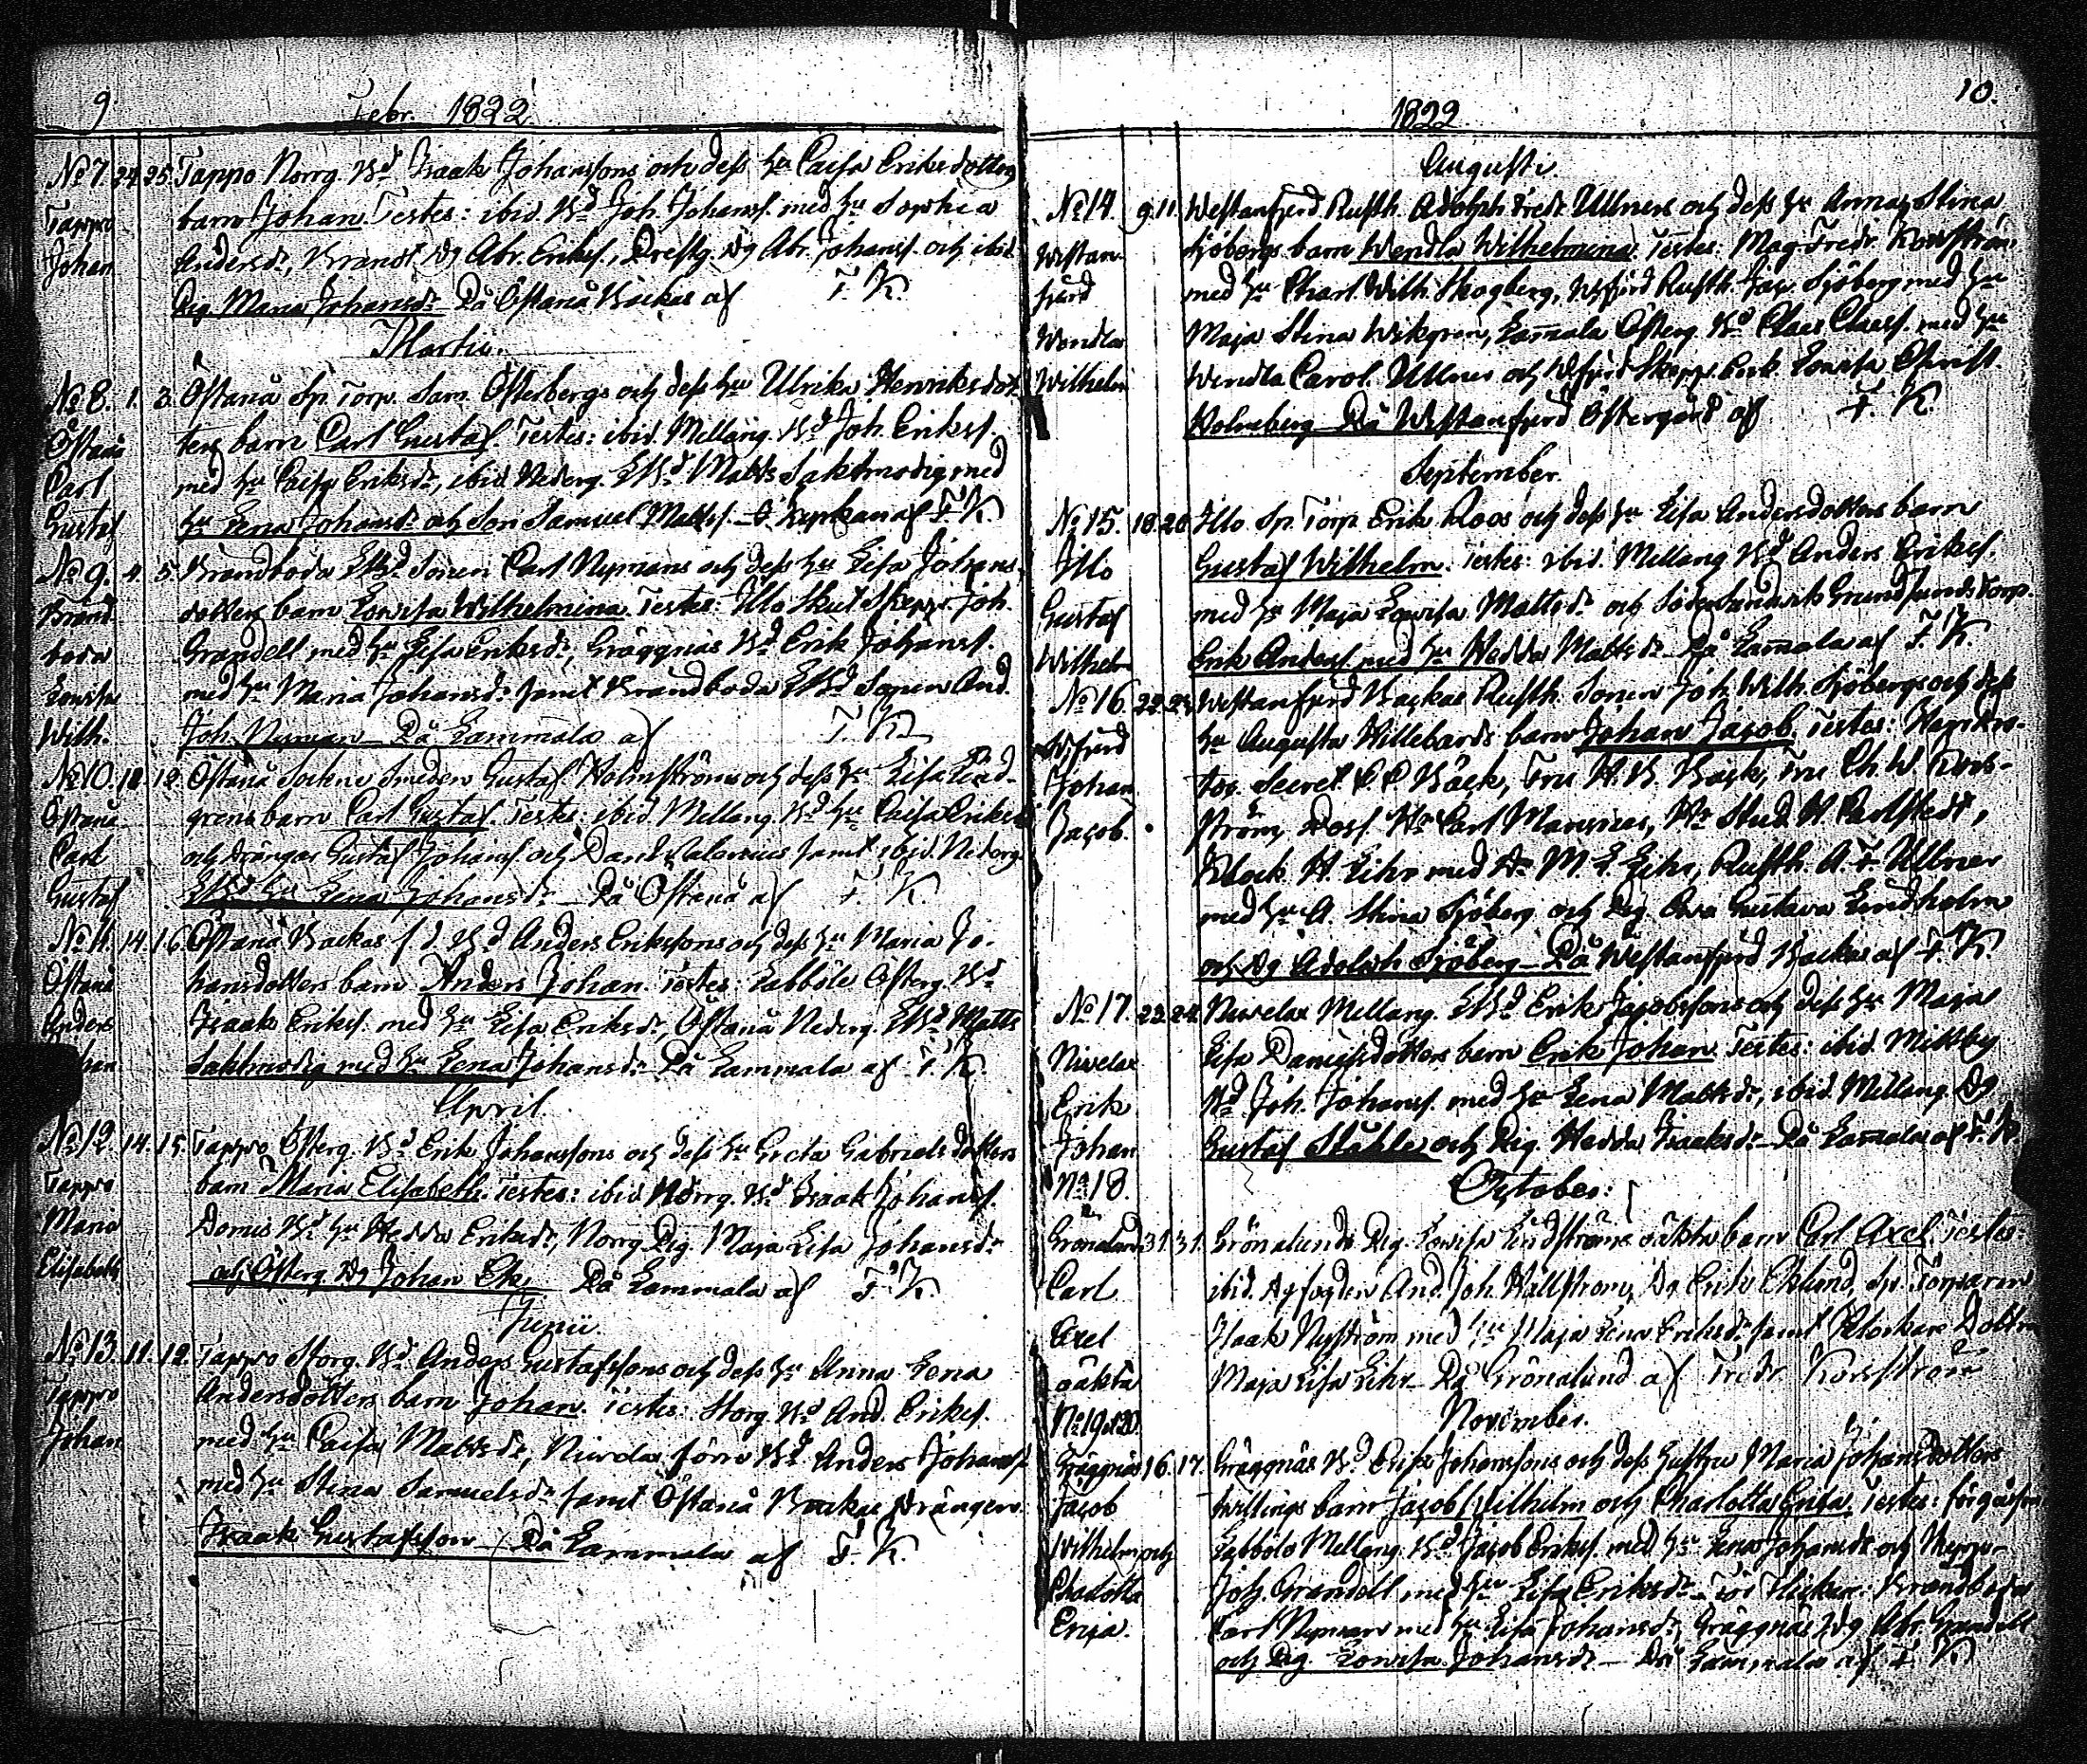 9. Febr. 1822
No 7. 24. 25. Tappo Norrg. Bd Isaak Johanssons och dess hu Caisa Eriksdotters
Tappo barn Johan. Testes: ibid. Bd Joh. Johanss. med hu Sophia
Johan Andersdr, Brandt Dg Abr. Erikss., Drefsg. Dg Abr. Johanss. och ibid
Pig. Maria Johansdr. Då Östanå Backas af F. K.
Martii.
No 8. 1. 3. Östanå Sp. Torp. Sam. Österbergs och dess hu Ulrika Henriksdot-
Östanå ters barn Carl Gustaf. Testes: ibid. Mellang. Bd Joh. Erikss.
Carl med hu Caisa Eriksdr, ibid Nederg. EBd Matts Saktmodig med
Gustaf hu Lena Johansdr och Son Samuel Mattss. af F. K.
No 9. 4. 5. Brandboda EBd Sonen Carl Nymans och dess hu Lisa Johans-
Brand- dotters barn Lovisa Wilhelmina. Testes: Illo Skut Skepp. Joh.
boda Grandell med hu Lisa Eriksdr, Gräggnäs Bd Erik Johanss.
Lovisa med hu Maria Johansdr samt Brandboda EBd Sonen And.
Wilh. Joh. Nyman. Då Lammala af F. K.
No 10. 12. 12. Östanå Sockne Smeden Gustaf Holmströms och dess hu Lisa Lind-
Östanå grens barn Carl Gustaf. Testes: ibid Mellang. Bd hu Caisa Eriksd
Carl och drängar Gustaf Johanss. och Dan. Valonius samt ibid. Nederg.
Gustaf EBd hu Lena Johansdr. Då Östanå af F. K.
No 11. 14. 16. Östanå Backas f d. Bd Anders Erikssons och dess hu Maria Jo-
Östanå hansdotters barn Anders Johan. Testes: Labböle Österg. Bd
Anders Isaak Erikss. med hu Lisa Eriksdr, Östanå Nederg. EBd Matts
Saktmodig med hu Lena Johansdr. Då Lammala af F. K.
April
No 12. 14. 15. Tappo Österg. Bd Erik Johanssons och dess hu Greta Gabrielsdotters
Tappo barn Maria Elisabeth. Testes: ibid Norrg. Bd Isaak Johanss.
Maria Domus Bd hu Hedda Eriksdr, Norrg Pig. Maja Lisa Johansdr
Elisabeth och Österg. Dg Johan Ek. Då Lammala af F. K.
Junii.
No 13. 11. 12. Tappo Storg. Bd Anders Gustafssons och dess hu Anna Lena
Tappo Andersdotters barn Johan. Testes: Storg. Bd And. Erikss.
Johan med hu Caisa Mattsdr, Nivelax förre Bd Anders Johanss.
med hu Stina Samuelsdr samt Östanå Backas Drängen
Isaak Gustafsson. Då Lammala af F. K.

1822 10.
Augusti.
No 14. 9. 11. Westanfjerd Rusth. Adolph Fredr Ullners och dess hu Anna Stina
Westan- Sjöbergs barn Wendla Wilhelmina. Testes: Mag. Fredr. Korsström
fjerd med hu Charl. Wilh. Skogberg, Wfjerd Rusth. Jac. Sjöberg med hu
Wendla Maja Stina Wikgren, Lammala Österg. Bd Claes Claess. med hu
Wilhelm Wendla Carol. Ullner och Wfjerd Skepp. Enk. Lovisa Christ.
Holmberg. Då Westanfjerd Östergård af F. K.
September.
No 15. 18. 20. Illo Sp. Torp. Erik Roos och dess hu Lisa Andersdotters barn
Illo Gustaf Wilhelm. Testes: ibid. Mellang Bd Anders Erikss.
Gustaf med hu Maja Lovisa Mattsdr och Söder Sundvik Grundsunds torp.
Wilhelm Erik Anderss. med hu Hedda Mattsdr. Då Lammala af F. K.
No 16. 22. 24. Westanfjerd Backas Rusth. Sonen Joh. Wilh. Sjöbergs och dess
Wfjerd hu Augusta Hillebards barn Johan Jacob. Testes:
Johan Secret. C. P. Bäck, Fru H. B. Bäck, Fru Ch. W. Kors-
Jacob. ström, Hr Carl Hr Stud. H. Carlstedt,
Klock. H. Lihr med M. L. Lihr, Rusth. A. F. Ullner
med hu A. Stina Sjöberg och Pig. Eva Gustava Lindholm
och Dg Adolph Sjöberg. Då Westanfjerd Backas af F. K.
No 17. 22. 24. Nivelax Mellang. EBd Erik Jacobssons och dess hu Maja
Nivelax Lisa Danielsdotters barn Erik Johan. Testes: ibid. Mittby
Erik Bd Joh. Johanss. med hu Lena Mattsdr, ibid. Mellang. Dg
Johan Gustaf Ståhle och Pig. Hedda Isaaksdr. Då Lammala af F. K.
No 18. October.
Grönalund 31. 31. Grönalunds Pig. Lovisa Lindströms oäkta barn Carl Axel. Testes:
Carl ibid. And. Joh. Hällström, Dg Erik Eklund, Sp. Torparen
Axel Isaak Nyström med hu Maja Lena Eriksdr samt Klockare Dottren
oäkta Maja Lisa Lihr. Då Grönalund af Fredr. Korsström
No 19 o 20. November.
Gräggnäs 16. 17. Gräggnäs Bd Erik Johanssons och dess hustru Maria Johansdotters
Jacob tvillings barn Jacob Wilhelm och Charlotta Erica. Testes: för gossen
Wilhelm och Labböle Mellang. Bd Jacob Erikss. med hu Lena Johansdr och Skepp.
Charlotta Joh. Grandell med hu Lisa Eriksdr. För flickan: Brandboda
Erica. Carl Nyman med hu Lisa Johansdr, Gräggnäs Dg Abr. Grandell
och Pig. Lovisa Johansdr. Då Lammala af F. K.